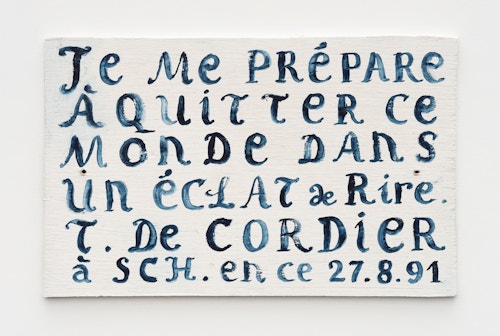 Je Me PRÉPARE
À QUITTER CE
MONDE DANS
UN ÉCLAT de Rire.
T. De CORDIER
à SCH. en ce 27.8.91